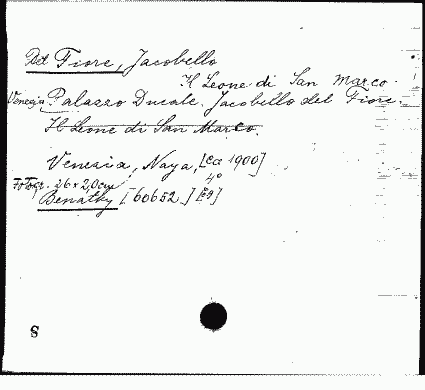 Del Fiore, Jacobello
Il Leone di San Marco.
Venezia Palazzo Ducale. Jacobello del Fiore.
Il Leone di San Marco.
Venezia, Naya, [ca 1900]
4°
Fotogr. 26 x 20 cm
Benatky [60652] [Eg]
S